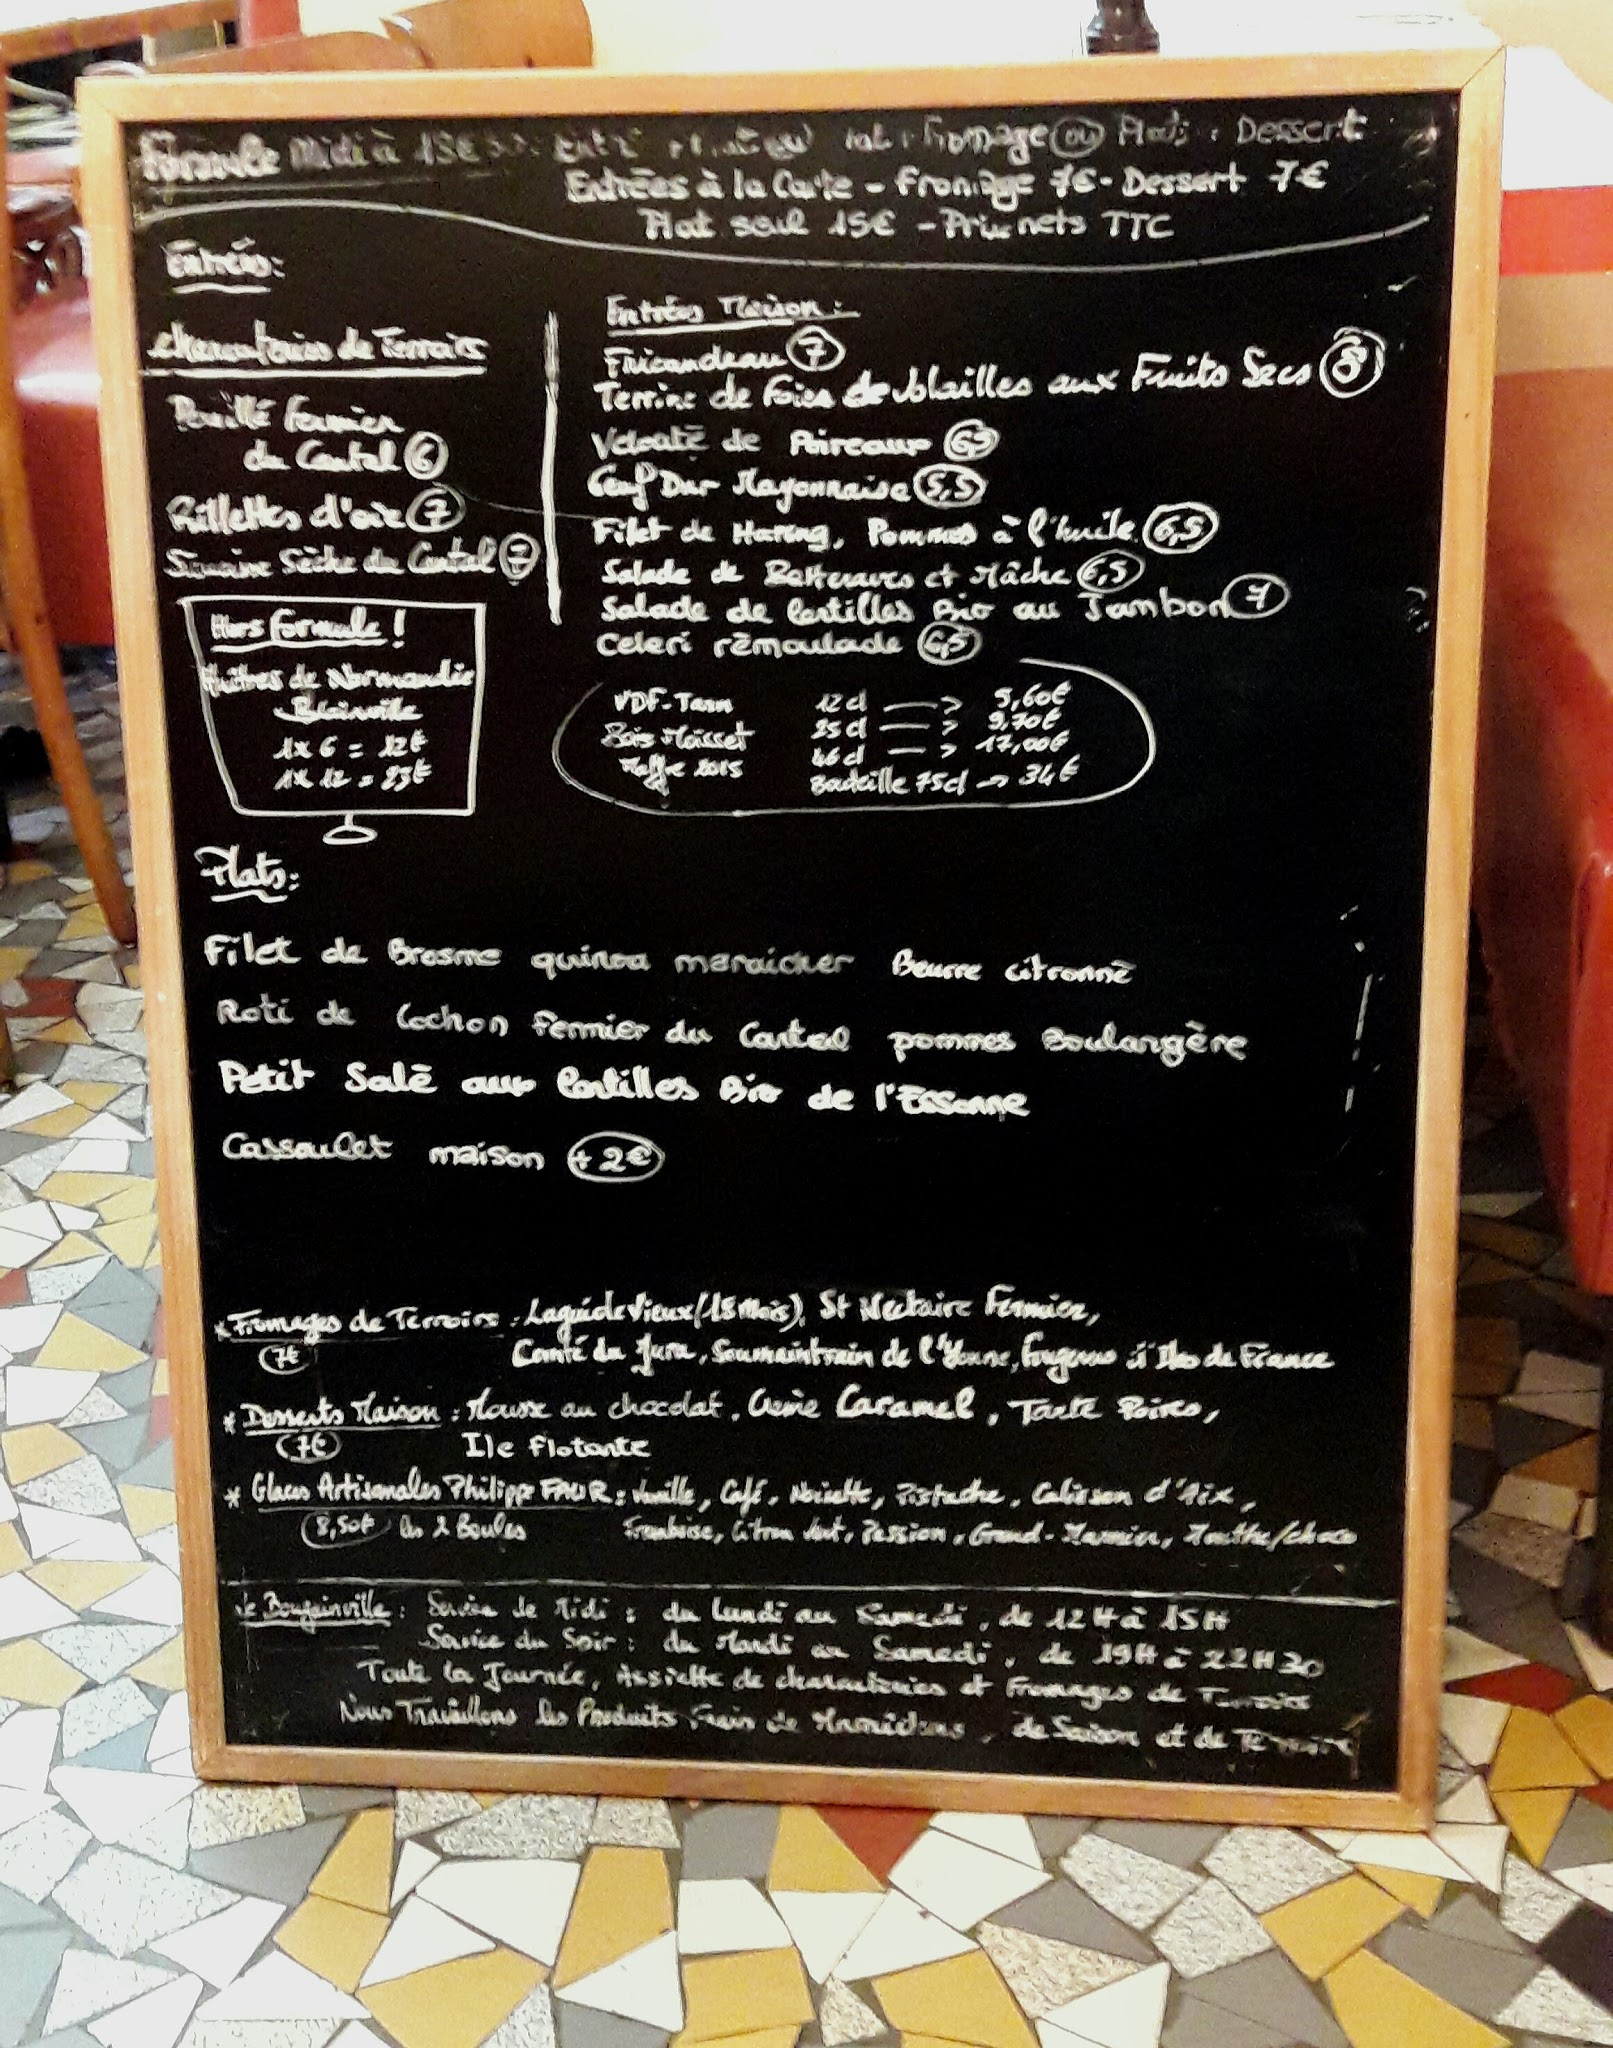 Formule Midi à Fromage ou Plat : Dessert
Entrées à la Carte - Fromage 7€ - Dessert 7€
Plat seul 15€ - Prix nets TTC
Entrées:
Charcuteries de Terroirs
Fermier
du Cantal 6
Rillettes d'oie 7
Sèche du Cantal 7
Hors formule !
Huîtres de Normandie
Blainville
1x6 = 12€
1x12 = 23€
Entrées Maison :
Fricandeau 7
Terrine de Foies de Volailles aux Fruits Secs 8
Velouté de Poireaux
Oeuf Dur Mayonnaise 5,5
Filet de Hareng, Pommes à l'huile 6,5
Salade de Betteraves et Mâche 6,5
Salade de lentilles Bio au Jambon 7
Celeri rémoulade 6,5
VDF-Tarn 12cl —> 5,60€
25cl —> 9,70€
46cl —> 17,00€
2015 Bouteille 75cl -> 34€
Plats:
Filet de Brosme quinoa maraicher Beurre citronné
Roti de Cochon Fermier du Cantal pommes Boulangère
Petit Salé aux lentilles Bio de l'Essonne
Cassoulet maison + 2€
* Fromages de Terroirs : Laguiole Vieux (18 mois), St Nectaire Fermier,
7€ Comté du Jura, Soumaintrain de l'Yonne, Fougerus d'Iles de France
* Desserts Maison : Mousse au chocolat, Crème Caramel, Tarte Poires,
7€ Ile flotante
* Glaces Artisanales Philippe FAUR : Vanille, Café, Noisette, Pistache, Calisson d'Aix,
8,50€ les 2 Boules Framboise, Citron Vert, Passion, Grand-Marnier, Menthe/choco
Le Bougainville : Service de Midi : du lundi au Samedi, de 12H à 15H
Service du Soir : du Mardi au Samedi, de 19H à 22H30
Toute la Journée, Assiette de charcuteries et Fromages de Terroirs
Nous Travaillons les Produits Frais de Maraîchers, de Saison et de Terroirs